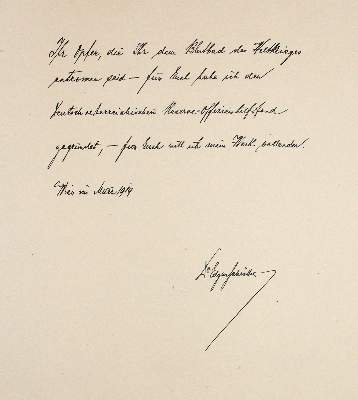 Ihr Opfer, die Ihr dem Blutbad des Weltkrieges
entronnen seid – für Euch habe ich den
Deutschösterreichischen Reserve-Offiziershilfsfond
gegründet, – für Euch will ich mein Werk vollenden.
Wien im März 1919
Dr